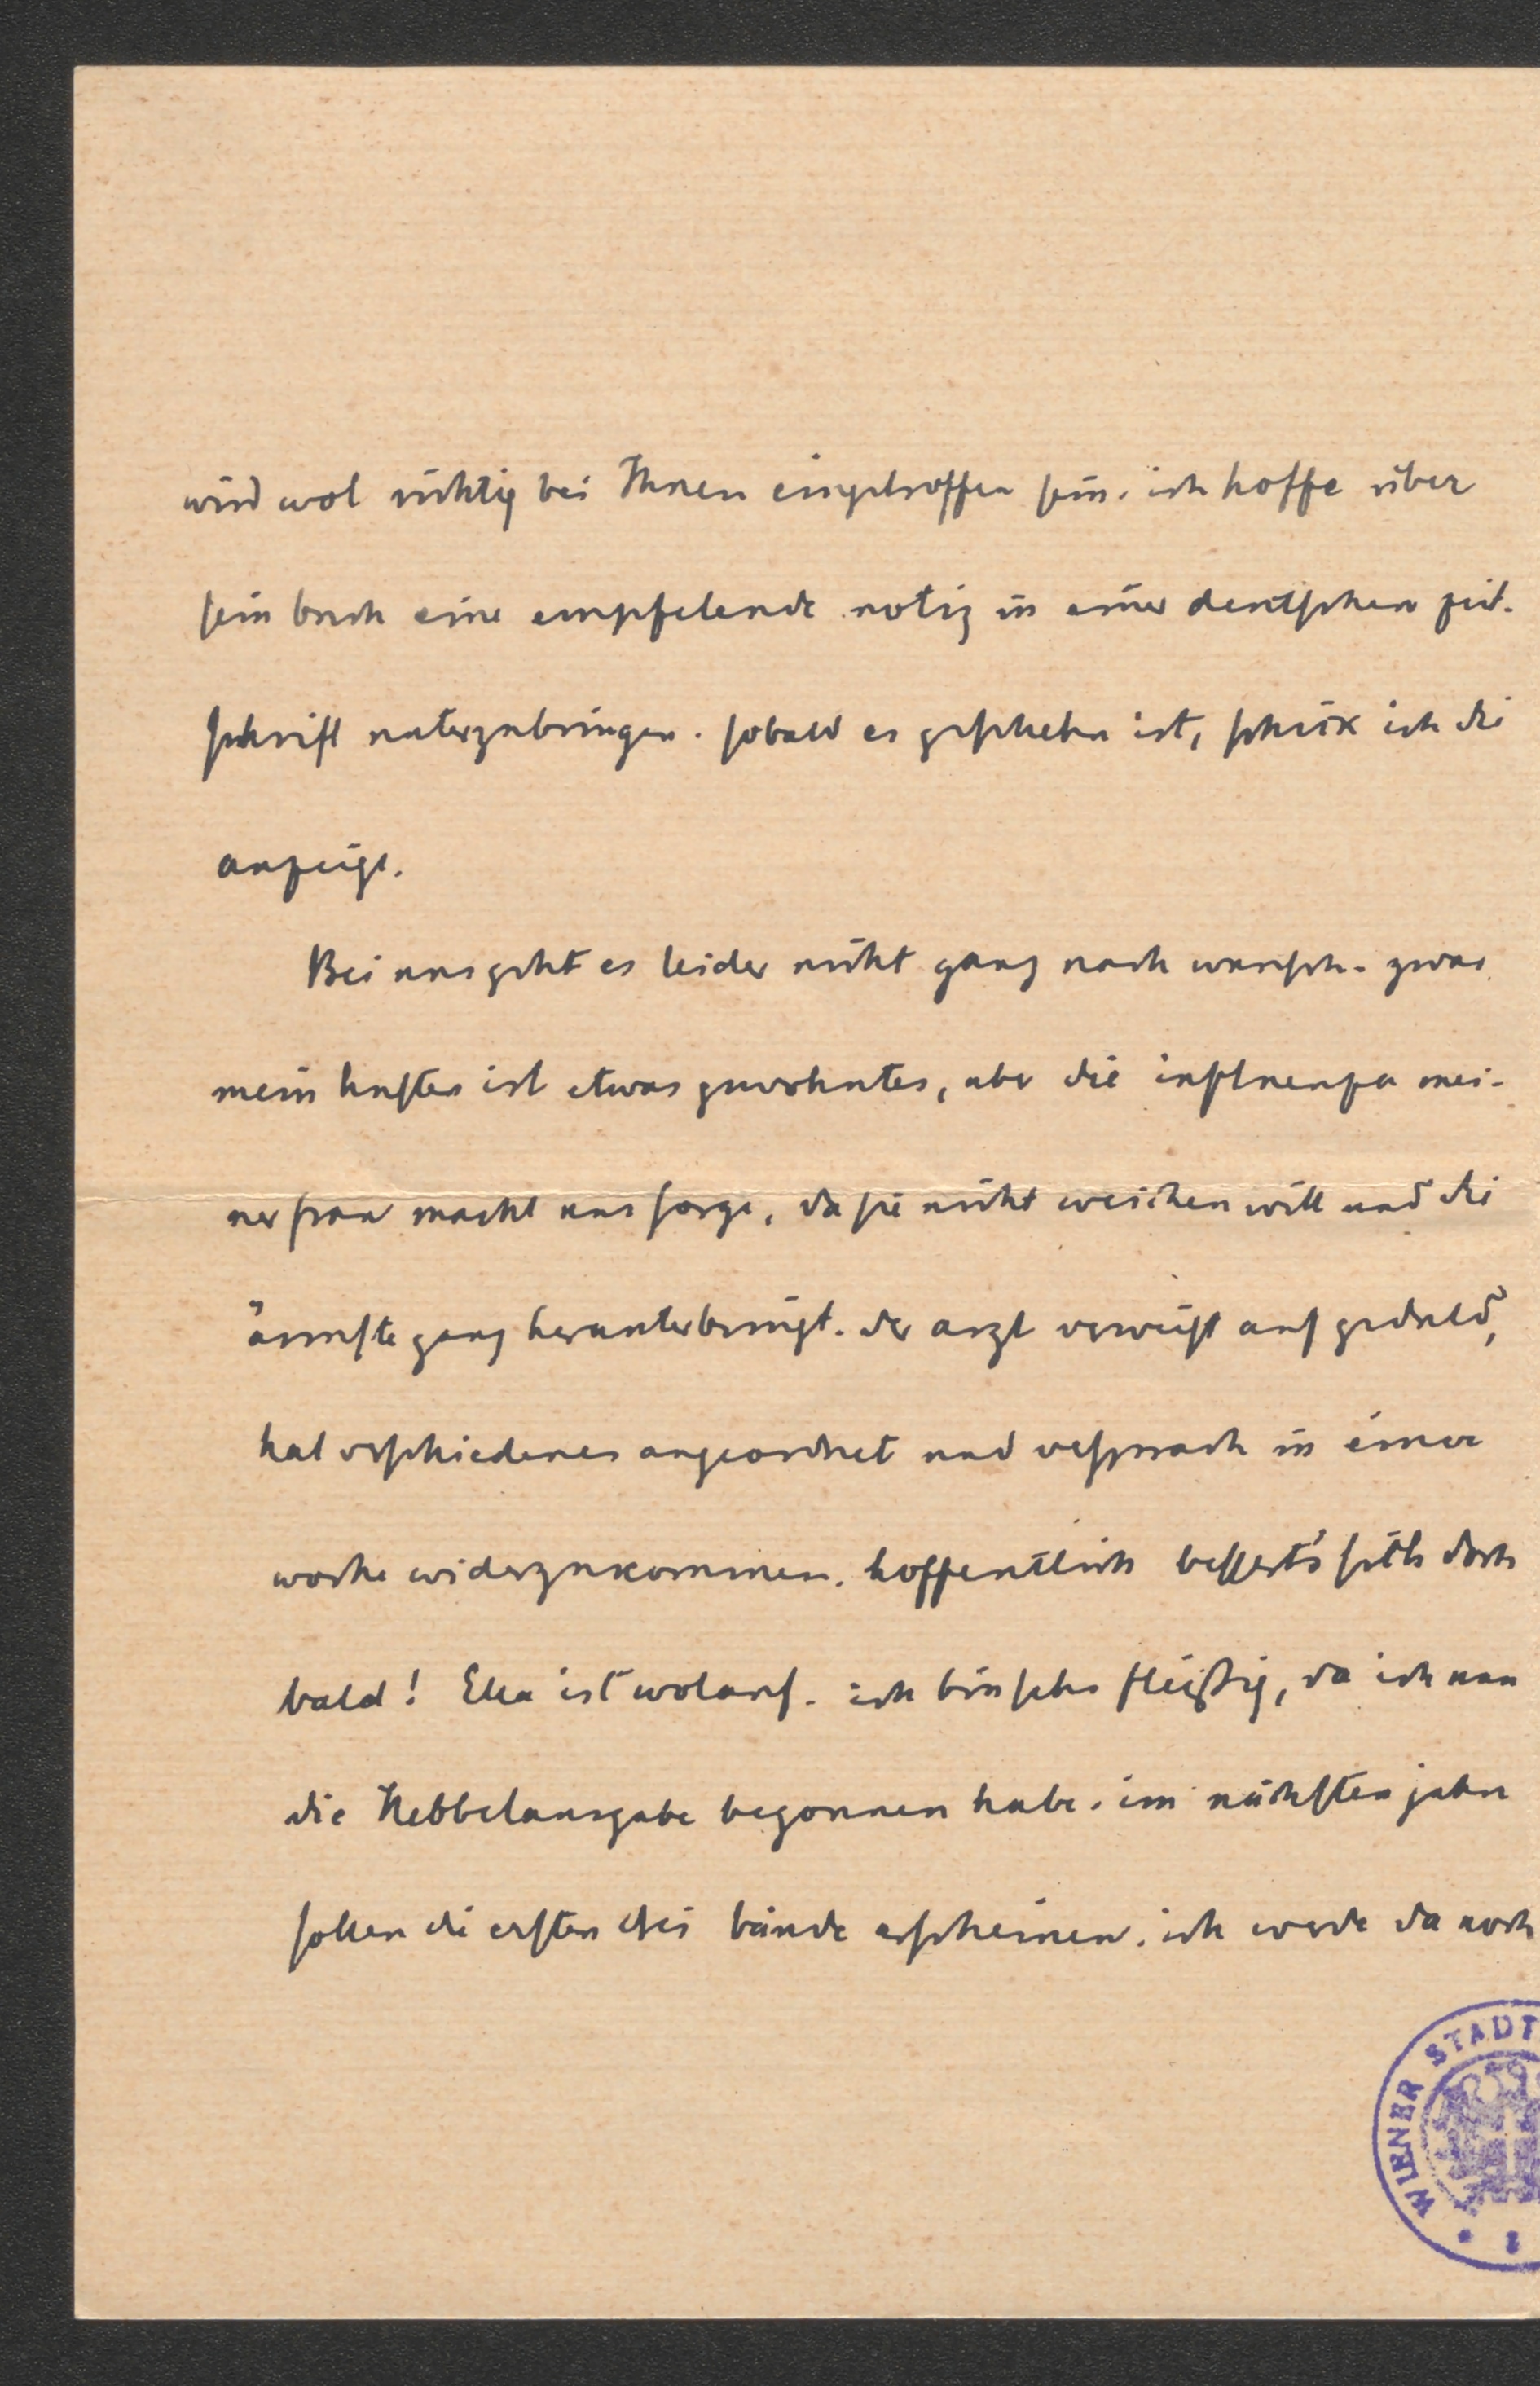 wird wol richtig bei Ihnen eingetroffen sein. ich hoffe über
sein buch eine empfelende notiz in einer deutschen zeit-
schrift unterzubringen. sobald es geschehen ist, schick ich die
anzeige.
Bei uns geht es leider nicht ganz nach wunsch. zwar
mein husten ist etwas gewohntes, aber die influenza mei-
ner frau macht uns sorge, da sie nicht weichen will und die
ärmste ganz herunterbringt. der arzt verweist auf geduld,
hat verschiedenes angeordnet und versprach in einer
woche widerzukommen. hoffentlich bessert's sich doch
bald! Ella ist wolauf. ich bin sehr fleißig, da ich nun
die Hebbelausgabe begonnen habe. im nächsten jahre
sollen die ersten drei bände erscheinen. ich werde da noch
WIENER STADT